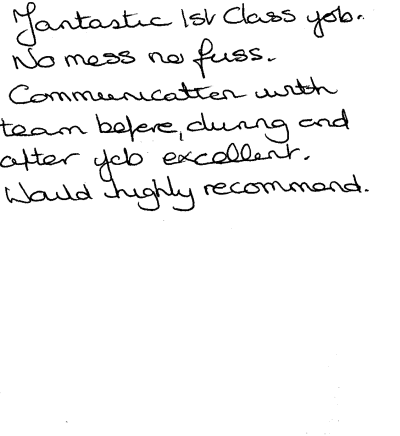 Fantastic 1st Class job.
No mess no fuss.
Communication with
team before, during and
after job excellent.
Would highly recommend.